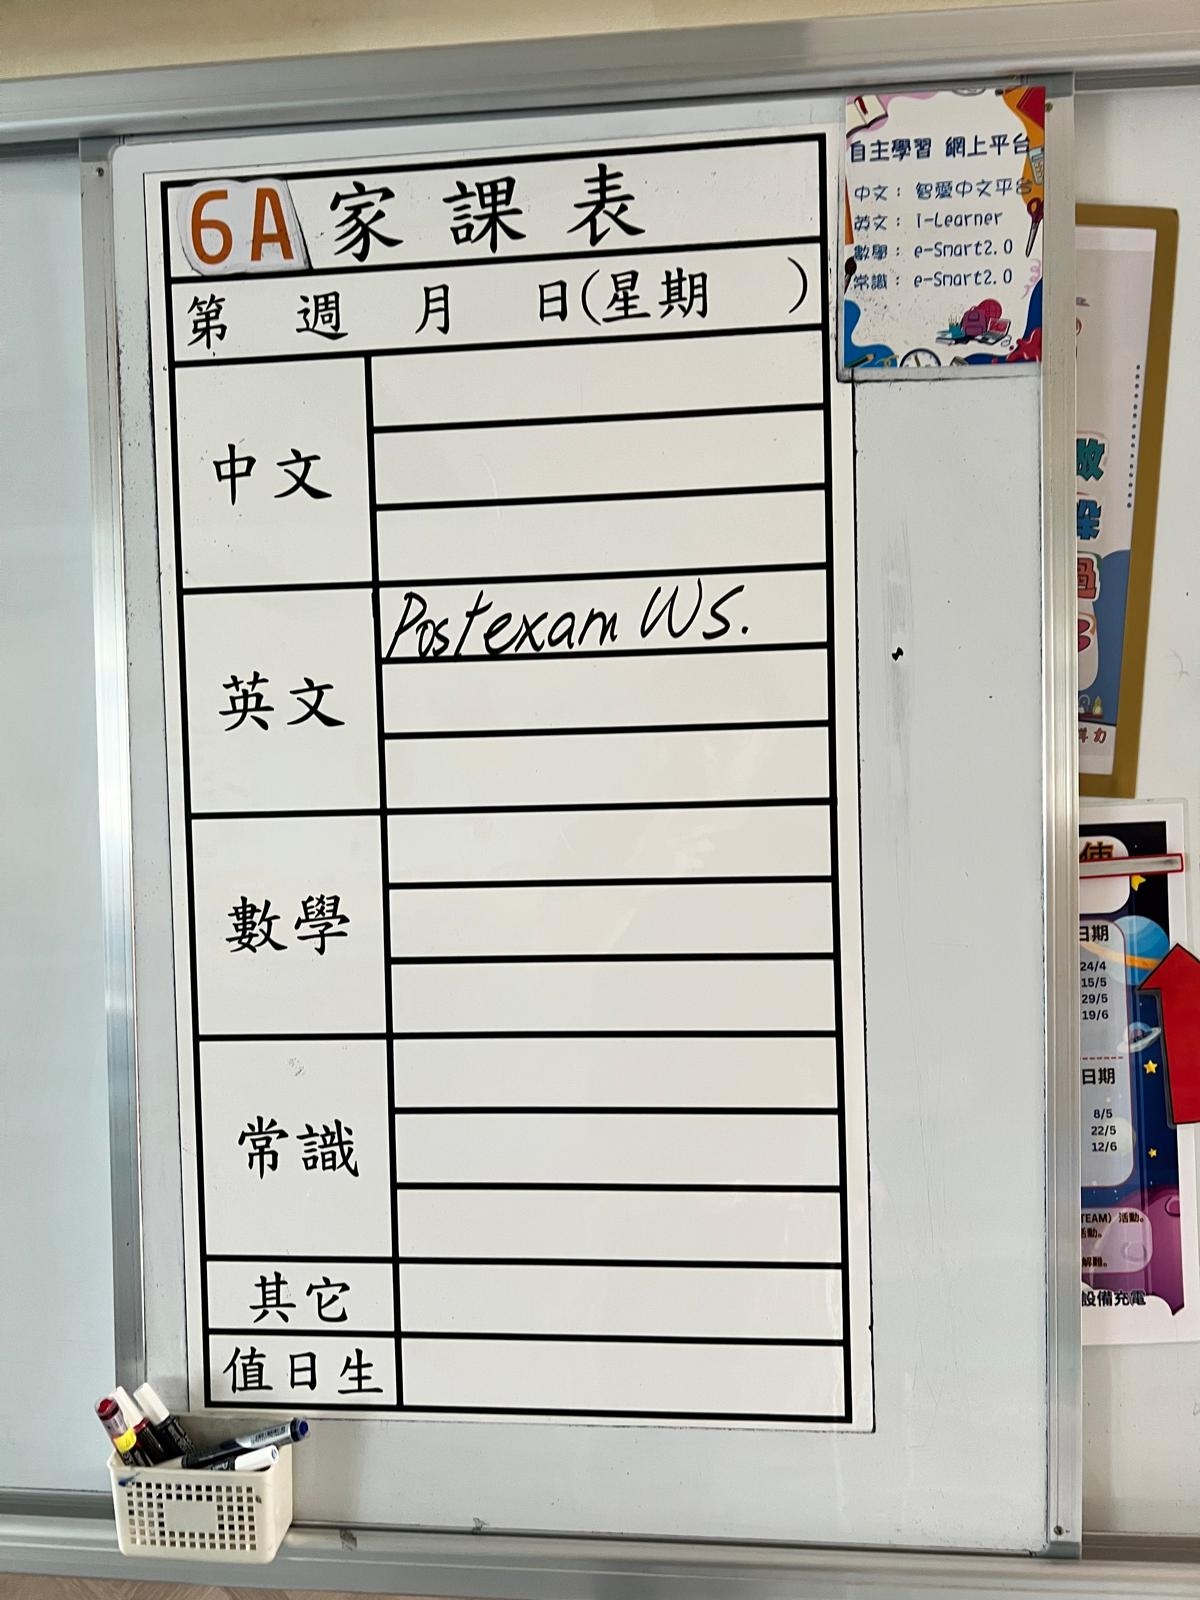 6A 家課表
第 週 月 日(星期 )
中文
英文
Postexam WS.
數學
常識
其它
值日生
自主學習 網上平台
中文： 智愛中文平台
英文： i-Learner
數學： e-Smart2.0
常識： e-Smart2.0
日期
24/4
15/5
29/5
19/6
日期
8/5
22/5
12/6
TEAM）活動。
活動。
解難。
設備充電